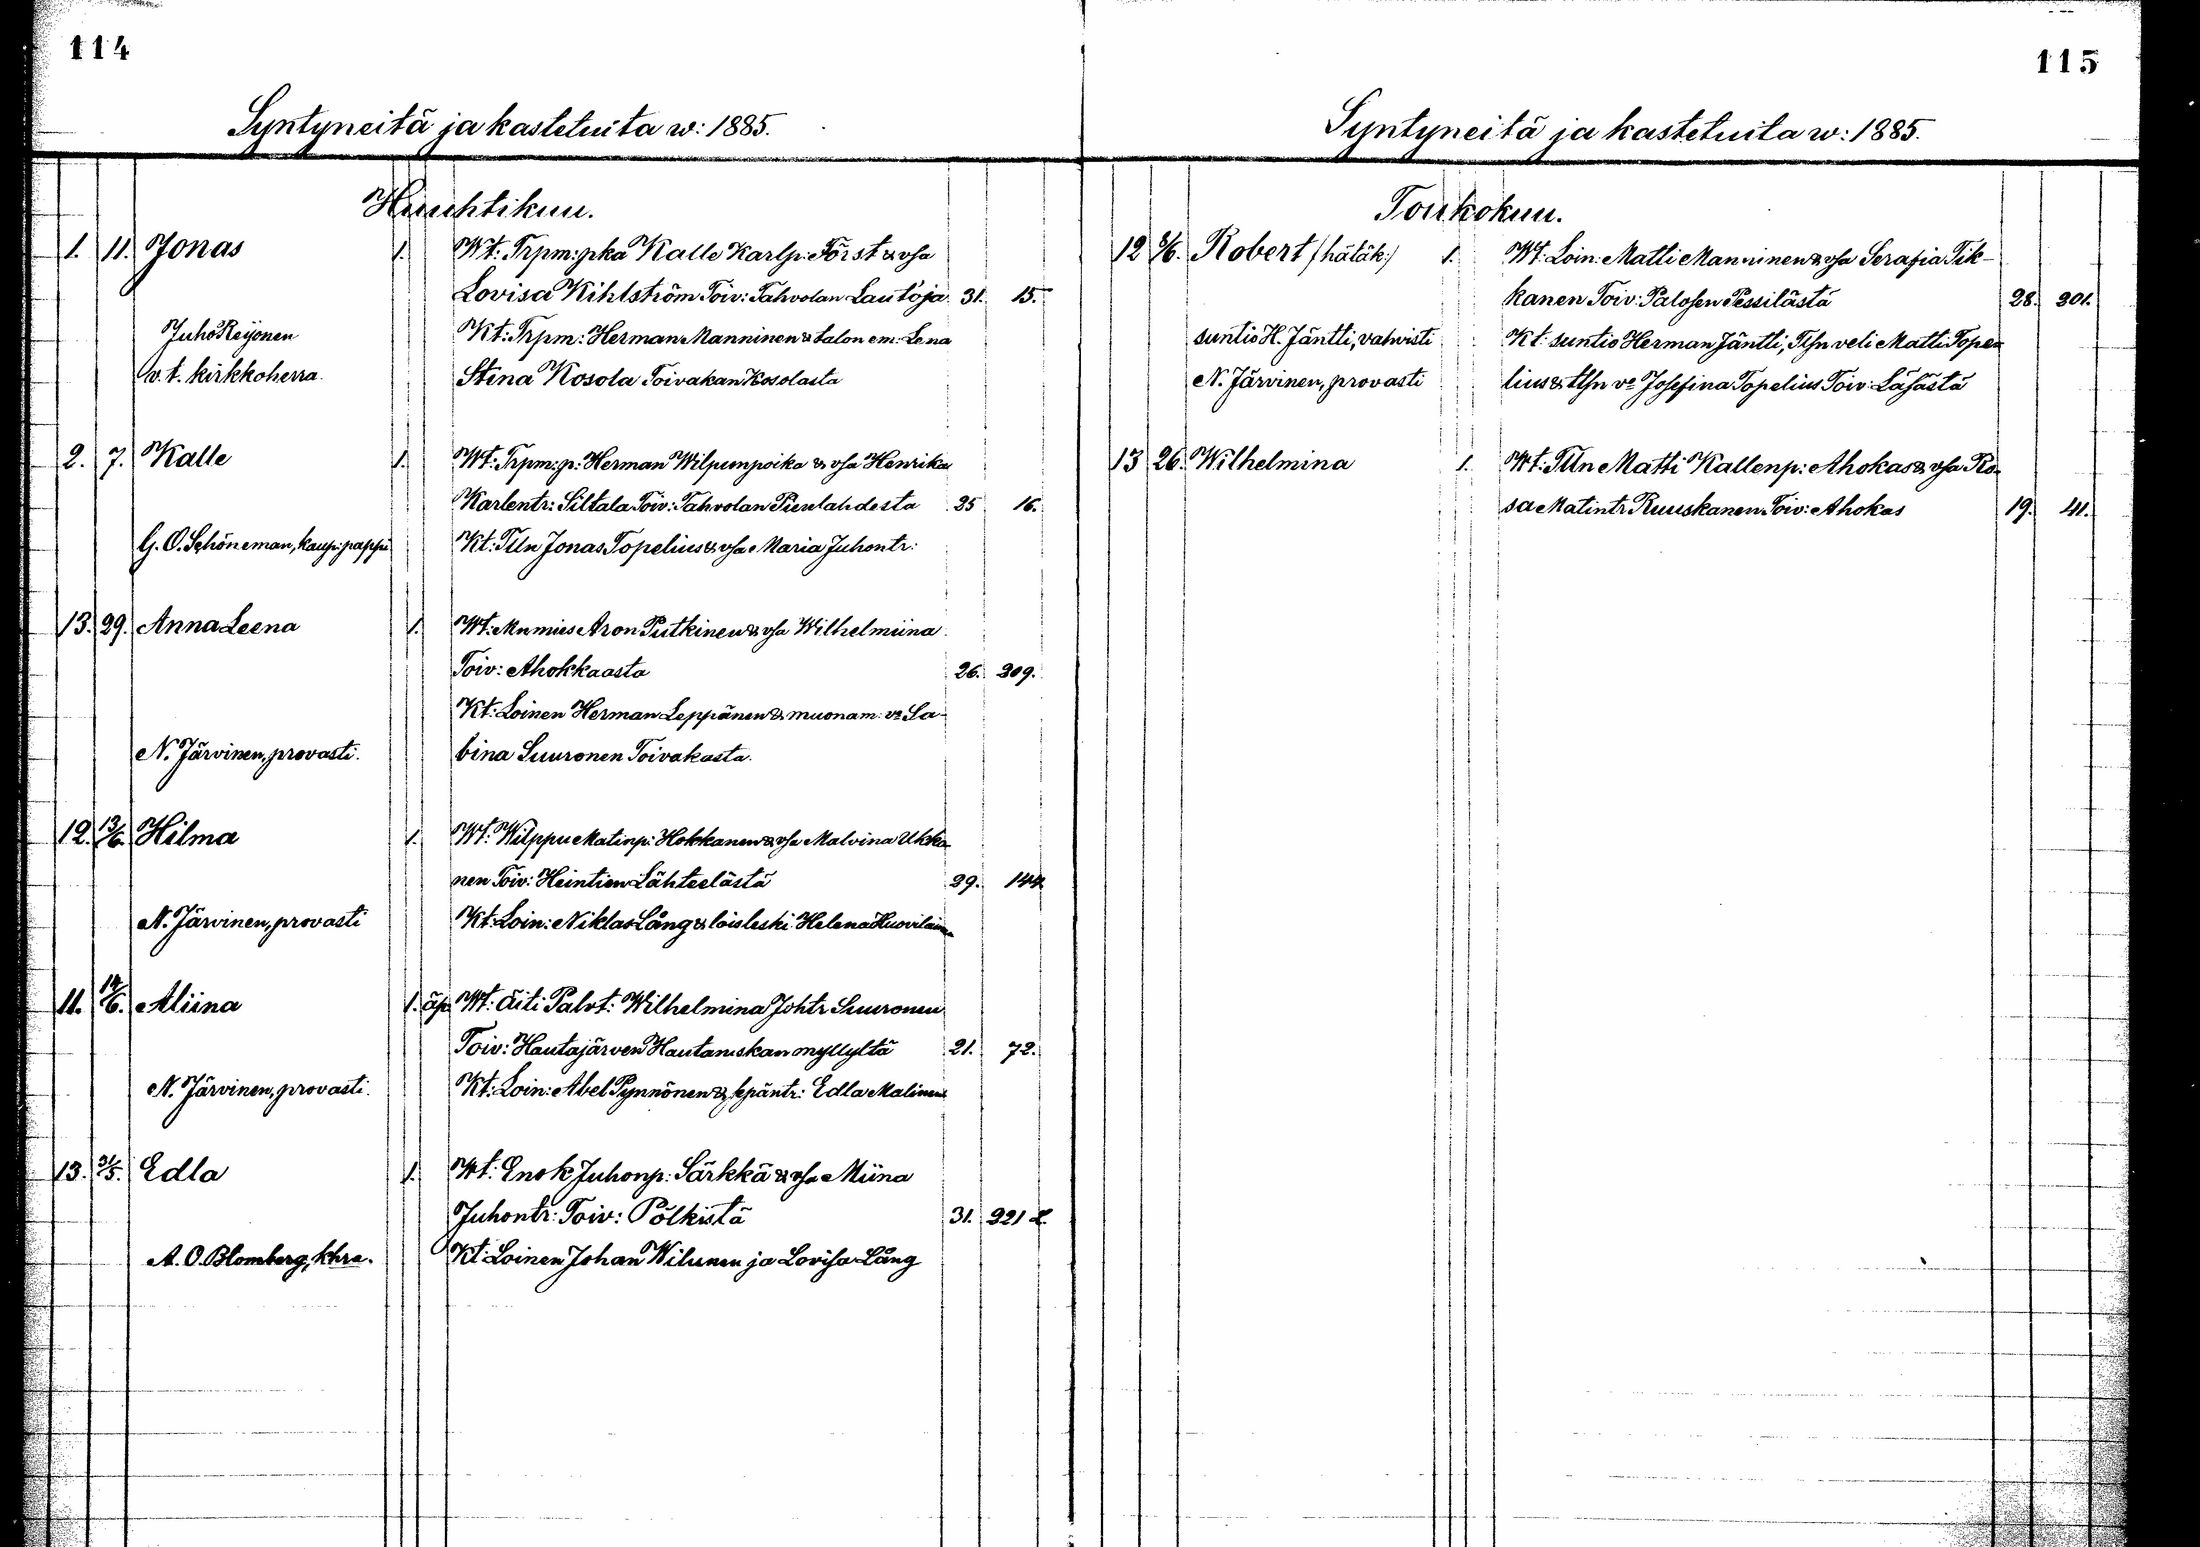 114
Syntyneitä ja kastetuita w: 1885.
Huhtikuu.
1. 11. Jonas 1. Wt: Trpm: pka Kalle Karlp: Först & vsa
Lovisa Kihlström Toiv: Tahvolan Lautoja 31. 15.
Juho Reijonen Kt: Trpm: Herman Manninen & talon em: Lena
v. t. kirkkoherra. Stina Kosola Toivakan Kosolasta
2. 7. Kalle 1. Wt: Trpm: p: Herman Wilpunpoika & vsa Henrika
Karlentr: Siltala Toiv: Tahvolan Pienlahdesta 35 16.
G. O. Schöneman, kaup: pappi Kt: Tlln Jonas Topelius & vsa Maria Juhontr:
13. 29. Anna Leena 1. Wt: Mnmies Aron Putkinen & vsa Wilhelmiina
Toiv: Ahokkaasta 26. 309.
Kt: Loinen Herman Leppänen & muonam: vo Sa-
N. Järvinen, provasti. bina Suuronen Toivakasta.
12. 13/6. Hilma 1. Wt: Wilppu Matinp: Hokkanen & vsa Malvina Ukko-
nen Toiv: Heintien Lähteelästä 29. 144
N. Järvinen, provasti Kt: Loin: Niklas Lång & loisleski Helena Huovilainen
11. 14/6. Aliina 1. äp. Wt: Äiti Palvt: Wilhelmina Johtr Suuronen
Toiv: Hautajärven Hautaniskan myllyltä 21. 72.
N. Järvinen, provasti. Kt: Loin: Abel Pynnönen & sepäntr: Edla Malinen
13. 31/5. Edla 1. Wt: Enok Juhonp: Särkkä & vsa Miina
Juhontr: Toiv: Pölkistä 31. 921 L.
A. O. Blomberg, khra. Kt: Loinen Johan Wilunen ja Lovisa Lång
115
Syntyneitä ja kastetuita w: 1885.
Toukokuu.
12 8/6. Robert /: hätäk:/ 1. Wt: Loin: Matti Manninen & vsa Serafia Tik-
kanen Toiv: Palosen Pessilästä 28. 301.
suntio H. Jäntti, vahvisti Kt: suntio Herman Jäntti, Tlsn veli Matti Tope-
N. Järvinen, provasti lius & tlsn vo Josefina Topelius Toiv: Läsästä
13 26. Wilhelmina 1. Wt: Tlln Matti Kallenp: Ahokas & vsa Ro-
sa Matintr Ruuskanen Toiv: Ahokas 19. 41.